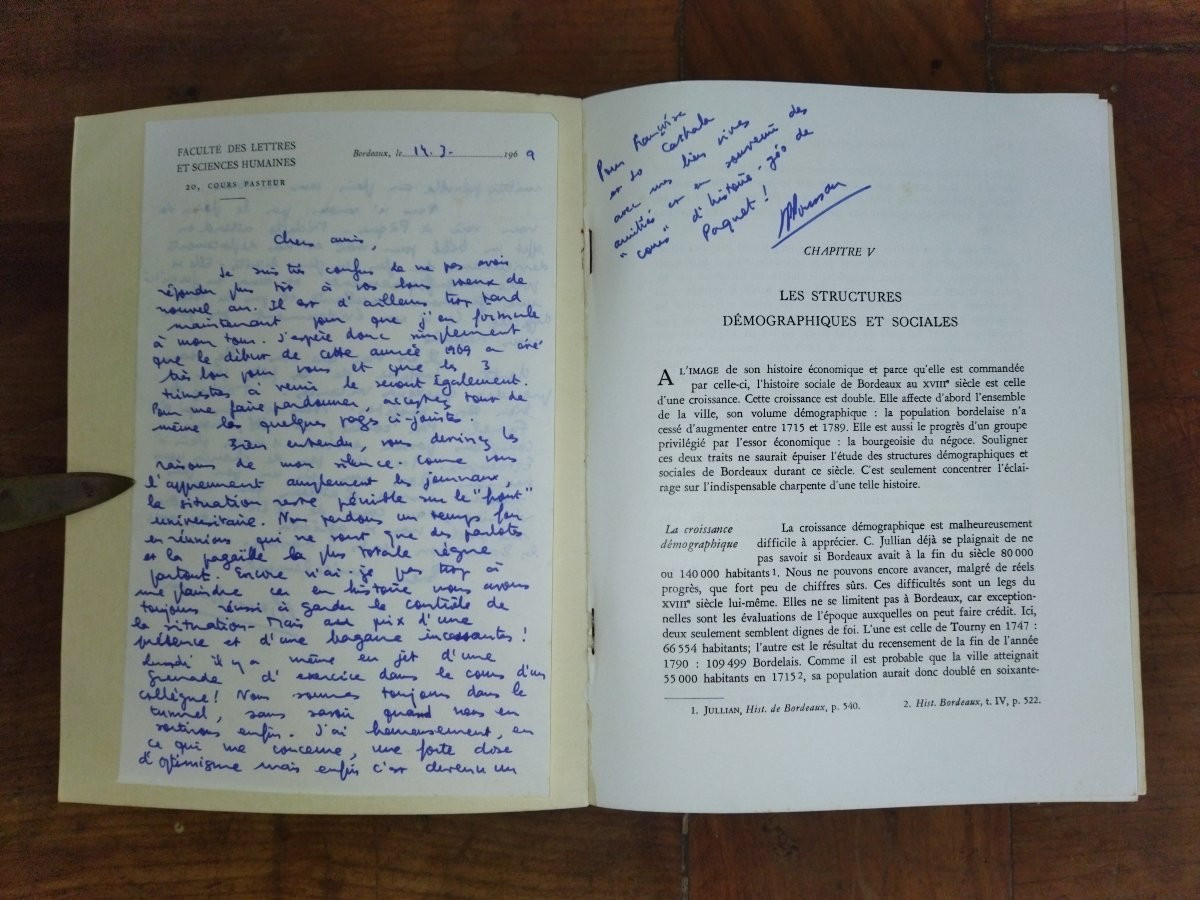 FACULTÉ DES LETTRES
ET SCIENCES HUMAINES
20, COURS PASTEUR
Bordeaux, le 14. 3. 1969
Chers amis,
Je suis très confus de ne pas avoir
répondu plus tôt à vos bons voeux de
nouvel an. Il est d'ailleurs trop tard
maintenant pour que j'en formule
à mon tour. J'espère donc simplement
que le début de cette année 1969 a été
très bon pour vous et que les 3
trimestres à venir le seront également.
Pour me faire pardonner, acceptez tout de
même les quelques pages ci-jointes.
Bien entendu, vous devinez les
raisons de mon silence. Comme vous
l'apprennent amplement les journaux,
la situation reste pénible sur le "front"
universitaire. Nous perdons un temps fou
en réunions qui ne sont que des parlotes
et la pagaille la plus totale règne
partout. Encore n'ai-je pas trop à
me plaindre car en histoire nous avons
toujours réussi à garder le contrôle de
la situation. Mais au prix d'une
présence et d'une bagarre incessantes !
Lundi il y a même eu jet d'une
grenade d'exercice dans le cours d'un
collègue ! Nous sommes toujours dans le
tunnel, sans savoir quand nous en
sortirons enfin. J'ai heureusement, en
ce qui me concerne, une forte dose
d'optimisme mais enfin c'est devenu un
Pour Françoise
et Jo Cathala
avec mes bien vives
amitiés et en souvenir des
"cours" d'histoire-géo de
Paquet !
CHAPITRE V
LES STRUCTURES
DÉMOGRAPHIQUES ET SOCIALES
A L'IMAGE de son histoire économique et parce qu'elle est commandée
par celle-ci, l'histoire sociale de Bordeaux au XVIIIe siècle est celle
d'une croissance. Cette croissance est double. Elle affecte d'abord l'ensemble
de la ville, son volume démographique : la population bordelaise n'a
cessé d'augmenter entre 1715 et 1789. Elle est aussi le progrès d'un groupe
privilégié par l'essor économique : la bourgeoisie du négoce. Souligner
ces deux traits ne saurait épuiser l'étude des structures démographiques et
sociales de Bordeaux durant ce siècle. C'est seulement concentrer l'éclai-
rage sur l'indispensable charpente d'une telle histoire.
La croissance
démographique
La croissance démographique est malheureusement
difficile à apprécier. C. Jullian déjà se plaignait de ne
pas savoir si Bordeaux avait à la fin du siècle 80 000
ou 140 000 habitants1. Nous ne pouvons encore avancer, malgré de réels
progrès, que fort peu de chiffres sûrs. Ces difficultés sont un legs du
XVIIIe siècle lui-même. Elles ne se limitent pas à Bordeaux, car exception-
nelles sont les évaluations de l'époque auxquelles on peut faire crédit. Ici,
deux seulement semblent dignes de foi. L'une est celle de Tourny en 1747 :
66 554 habitants; l'autre est le résultat du recensement de la fin de l'année
1790 : 109 499 Bordelais. Comme il est probable que la ville atteignait
55 000 habitants en 17152, sa population aurait donc doublé en soixante-
1. JULLIAN, Hist. de Bordeaux, p. 540.
2. Hist. Bordeaux, t. IV, p. 522.